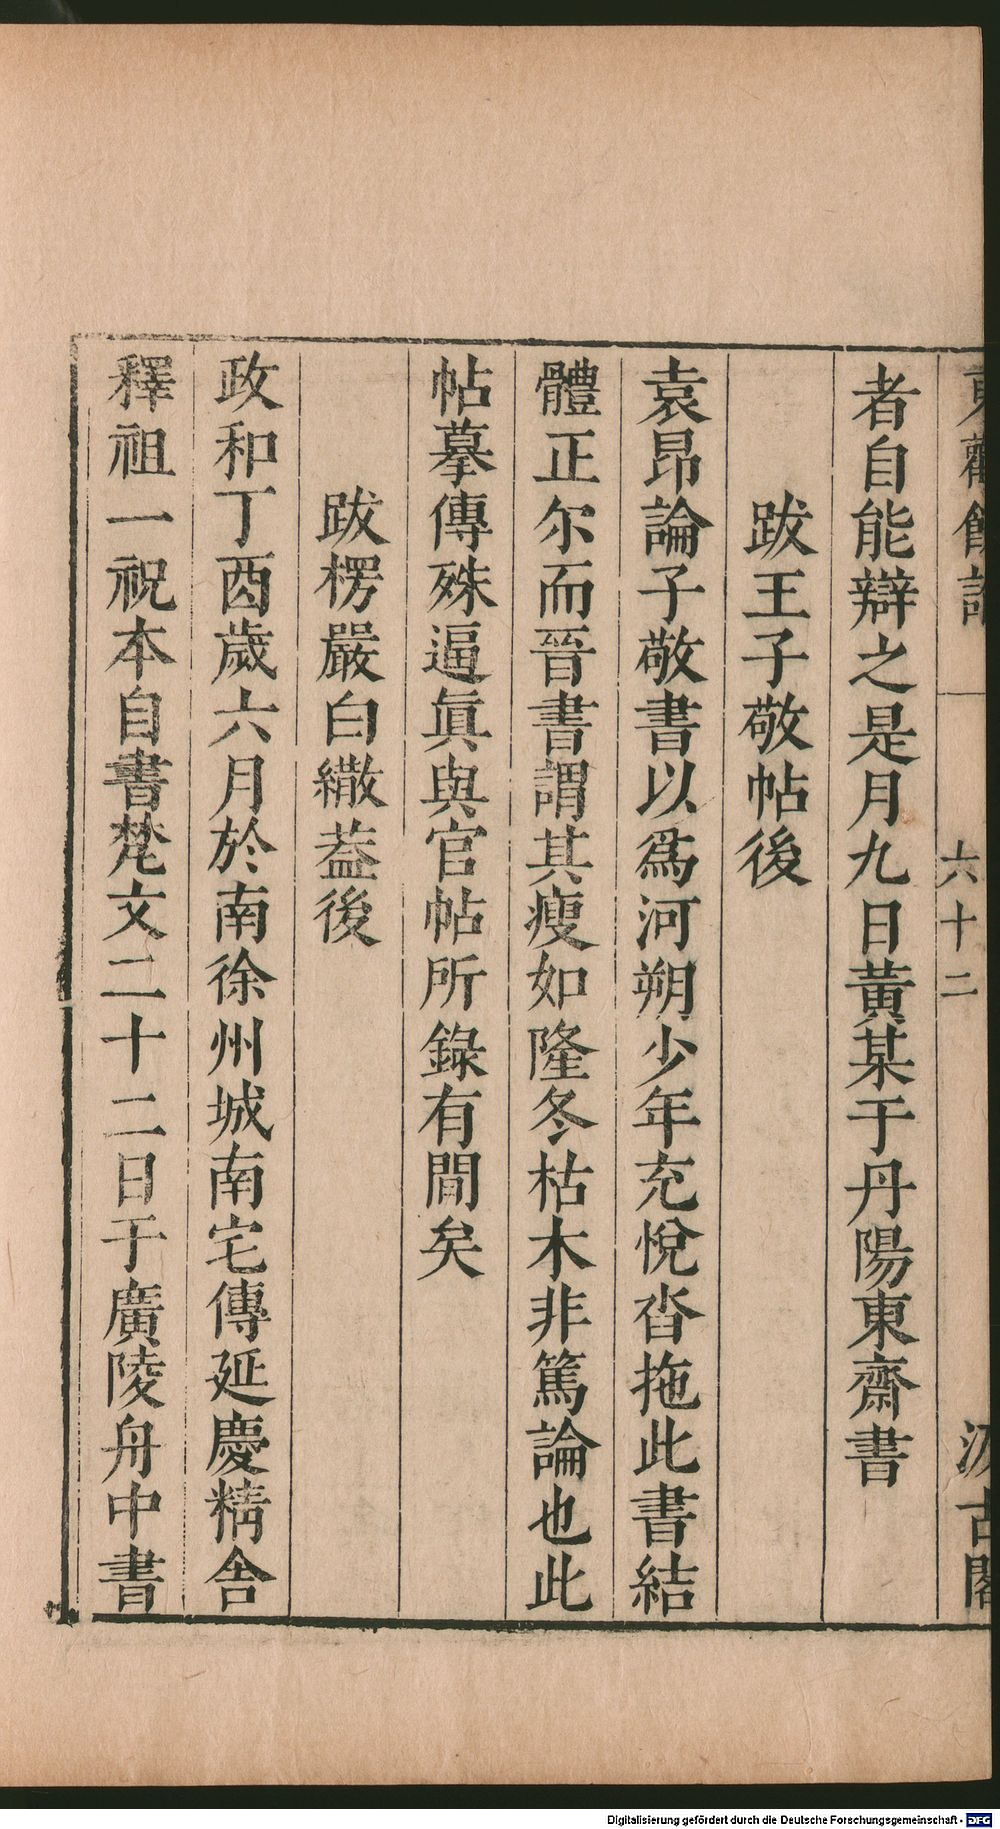 東觀餘論
六十二
汲古閣
者自能辯之是月九日黃某于丹陽東齋書
跋王子敬帖後
袁昂論子敬書以爲河朔少年充悅沓拖此書結
體正尔而晉書謂其瘦如隆冬枯木非篤論也此
帖摹傳殊逼眞與官帖所錄有間矣
跋楞嚴白繖葢後
政和丁酉歲六月於南徐州城南宅傳延慶精舍
釋祖一祝本自書梵文二十二日于廣陵舟中書
Digitalisierung gefördert durch die Deutsche Forschungsgemeinschaft - DFG